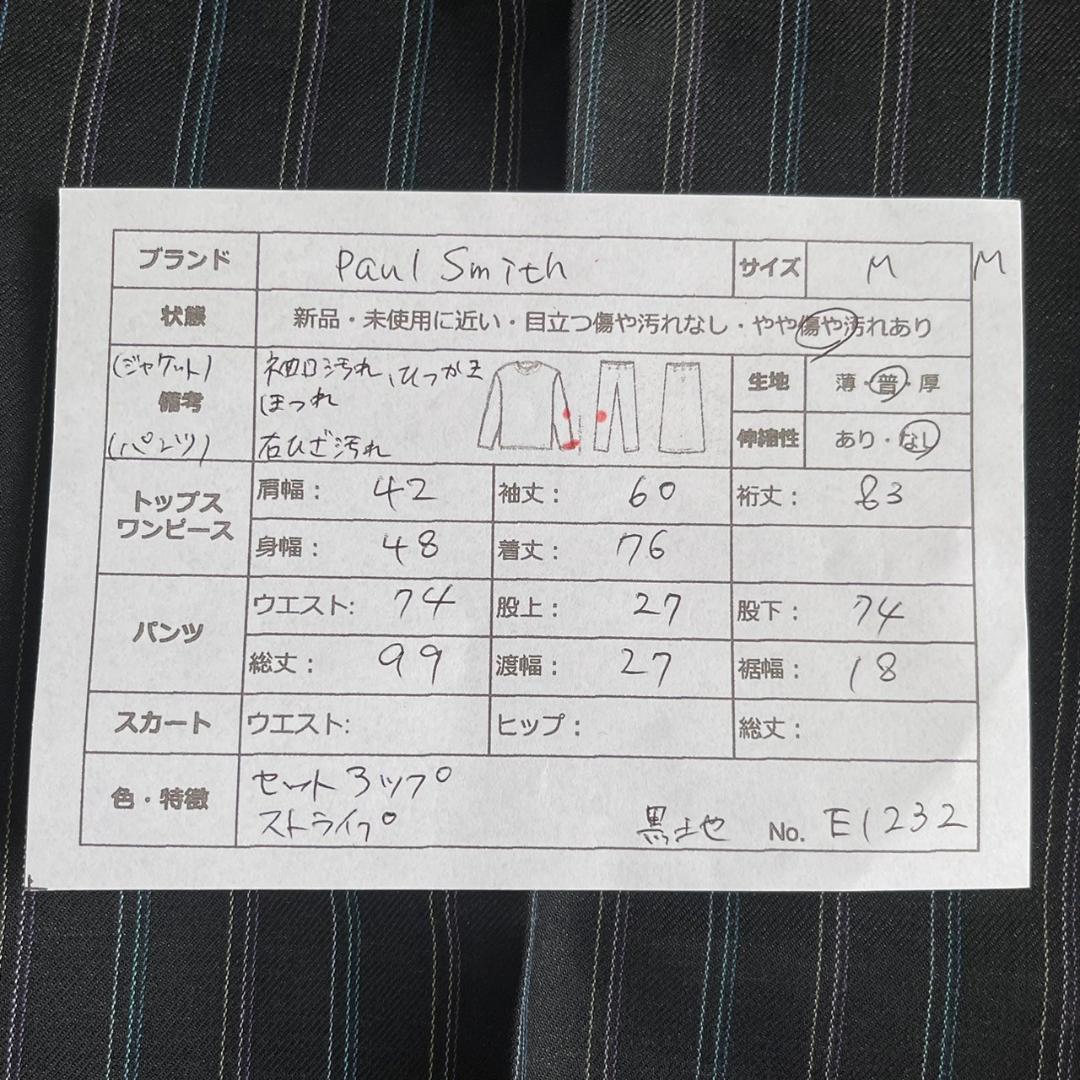 ブランド Paul Smith サイズ M M
状態 新品・未使用に近い・目立つ傷や汚れなし・やや傷や汚れあり
(ジャケット) 袖口汚れ、ひっかき
備考 ほつれ 生地 薄・普・厚
(パンツ) 右ひざ汚れ 伸縮性 あり・なし
トップス ワンピース
肩幅： 42 袖丈： 60 裄丈： 83
身幅： 48 着丈： 76
パンツ
ウエスト: 74 股上： 27 股下： 74
総丈： 99 渡幅： 27 裾幅： 18
スカート ウエスト: ヒップ： 総丈：
色・特徴 セットアップ
ストライプ 黒土也 No. E1232